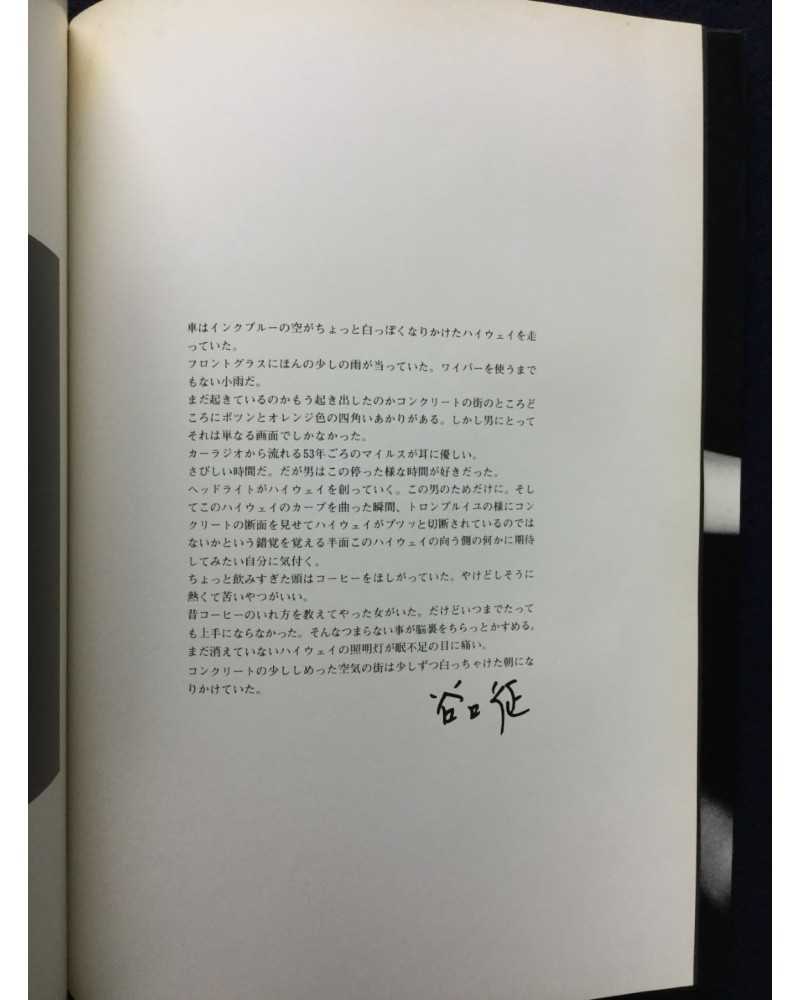 車はインクブルーの空がちょっと白っぽくなりかけたハイウェイを走
っていた。
フロントグラスにほんの少しの雨が当っていた。ワイパーを使うまで
もない小雨だ。
まだ起きているのかもう起き出したのかコンクリートの街のところど
ころにポツンとオレンジ色の四角いあかりがある。しかし男にとって
それは単なる画面でしかなかった。
カーラジオから流れる53年ごろのマイルスが耳に優しい。
さびしい時間だ。だが男はこの停った様な時間が好きだった。
ヘッドライトがハイウェイを創っていく。この男のためだけに。そし
てこのハイウェイのカーブを曲った瞬間、トロンプルイユの様にコン
クリートの断面を見せてハイウェイがプツッと切断されているのでは
ないかという錯覚を覚える半面このハイウェイの向う側の何かに期待
してみたい自分に気付く。
ちょっと飲みすぎた頭はコーヒーをほしがっていた。やけどしそうに
熱くて苦いやつがいい。
昔コーヒーのいれ方を教えてやった女がいた。だけどいつまでたって
も上手にならなかった。そんなつまらない事が脳裏をちらっとかすめる。
まだ消えていないハイウェイの照明灯が眠不足の目に痛い。
コンクリートの少ししめった空気の街は少しずつ白っちゃけた朝にな
りかけていた。
谷口征